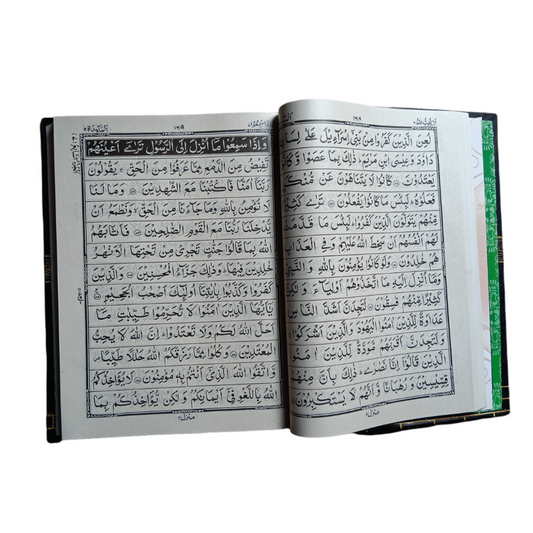 ١٦٨
لُعِنَ الَّذِيْنَ كَفَرُوْا مِنْۢ بَنِيْٓ اِسْرَآءِيْلَ عَلٰى لِسَانِ
دَاوٗدَ وَعِيْسَى ابْنِ مَرْيَمَ ؕ ذٰلِكَ بِمَا عَصَوْا وَّكَانُوْا
يَعْتَدُوْنَ ۝ كَانُوْا لَا يَتَنَاهَوْنَ عَنْ مُّنْكَرٍ
فَعَلُوْهُ ؕ لَبِئْسَ مَا كَانُوْا يَفْعَلُوْنَ ۝ تَرٰى كَثِيْرًا
مِّنْهُمْ يَتَوَلَّوْنَ الَّذِيْنَ كَفَرُوْا ؕ لَبِئْسَ مَا قَدَّمَتْ
لَهُمْ اَنْفُسُهُمْ اَنْ سَخِطَ اللّٰهُ عَلَيْهِمْ وَفِي الْعَذَابِ
هُمْ خٰلِدُوْنَ ۝ وَلَوْ كَانُوْا يُؤْمِنُوْنَ بِاللّٰهِ وَالنَّبِيِّ
وَمَآ اُنْزِلَ اِلَيْهِ مَا اتَّخَذُوْهُمْ اَوْلِيَآءَ وَلٰكِنَّ
كَثِيْرًا مِّنْهُمْ فٰسِقُوْنَ ۝ لَتَجِدَنَّ اَشَدَّ النَّاسِ
عَدَاوَةً لِّلَّذِيْنَ اٰمَنُوا الْيَهُوْدَ وَالَّذِيْنَ اَشْرَكُوْا ۚ
وَلَتَجِدَنَّ اَقْرَبَهُمْ مَّوَدَّةً لِّلَّذِيْنَ اٰمَنُوا
الَّذِيْنَ قَالُوْٓا اِنَّا نَصٰرٰى ؕ ذٰلِكَ بِاَنَّ مِنْهُمْ
قِسِّيْسِيْنَ وَرُهْبَانًا وَّاَنَّهُمْ لَا يَسْتَكْبِرُوْنَ ۝
منزل
١٦٩
وَاِذَا سَمِعُوْا مَآ اُنْزِلَ اِلَى الرَّسُوْلِ تَرٰٓى اَعْيُنَهُمْ
تَفِيْضُ مِنَ الدَّمْعِ مِمَّا عَرَفُوْا مِنَ الْحَقِّ ۚ يَقُوْلُوْنَ
رَبَّنَآ اٰمَنَّا فَاكْتُبْنَا مَعَ الشّٰهِدِيْنَ ۝ وَمَا لَنَا
لَا نُؤْمِنُ بِاللّٰهِ وَمَا جَآءَنَا مِنَ الْحَقِّ ۙ وَنَطْمَعُ اَنْ
يُّدْخِلَنَا رَبُّنَا مَعَ الْقَوْمِ الصّٰلِحِيْنَ ۝ فَاَثَابَهُمُ
اللّٰهُ بِمَا قَالُوْا جَنّٰتٍ تَجْرِيْ مِنْ تَحْتِهَا الْاَنْهٰرُ
خٰلِدِيْنَ فِيْهَا ؕ وَذٰلِكَ جَزَآءُ الْمُحْسِنِيْنَ ۝ وَالَّذِيْنَ
كَفَرُوْا وَكَذَّبُوْا بِاٰيٰتِنَآ اُولٰٓئِكَ اَصْحٰبُ الْجَحِيْمِ ۝
يٰٓاَيُّهَا الَّذِيْنَ اٰمَنُوْا لَا تُحَرِّمُوْا طَيِّبٰتِ مَآ
اَحَلَّ اللّٰهُ لَكُمْ وَلَا تَعْتَدُوْا ؕ اِنَّ اللّٰهَ لَا يُحِبُّ
الْمُعْتَدِيْنَ ۝ وَكُلُوْا مِمَّا رَزَقَكُمُ اللّٰهُ حَلٰلًا طَيِّبًا ۪
وَّاتَّقُوا اللّٰهَ الَّذِيْٓ اَنْتُمْ بِهٖ مُؤْمِنُوْنَ ۝ لَا يُؤَاخِذُكُمُ
اللّٰهُ بِاللَّغْوِ فِيْٓ اَيْمَانِكُمْ وَلٰكِنْ يُّؤَاخِذُكُمْ بِمَا
منزل